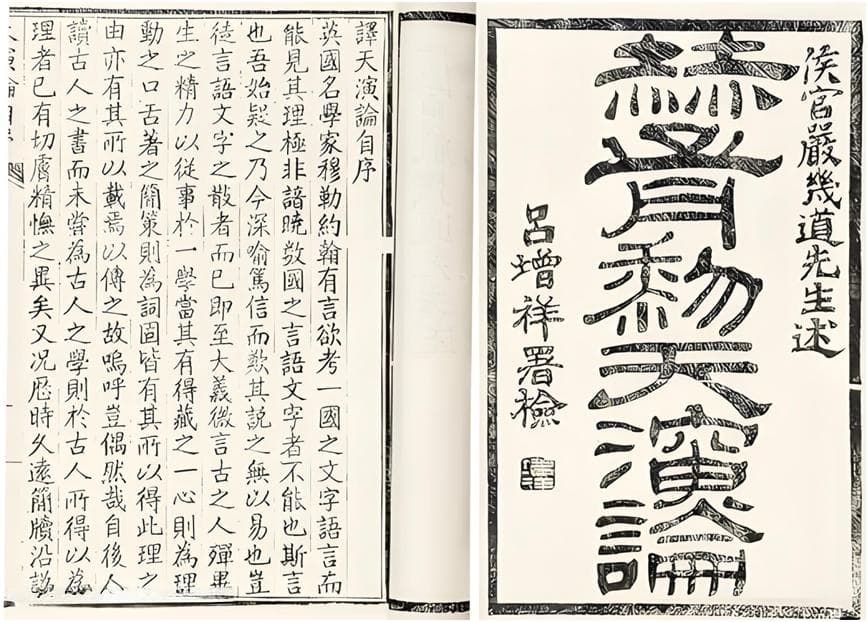 侯官嚴幾道先生述
赫胥黎天演論
呂增祥署檢
譯天演論自序
英國名學家穆勒約翰有言欲考一國之文字語言而
能見其理極非諳曉數國之言語文字者不能也斯言
也吾始疑之乃今深喻篤信而歎其說之無以易也豈
徒言語文字之散者而已即至大義微言古之人殫畢
生之精力以從事於一學當其有得藏之一心則為理
動之口舌著之簡策則為詞固皆有其所以得此理之
由亦有其所以載焉以傳之故嗚呼豈偶然哉自後人
讀古人之書而未嘗為古人之學則於古人所得以為
理者已有切膚精憮之異矣又況厯時久遠簡牘沿譌